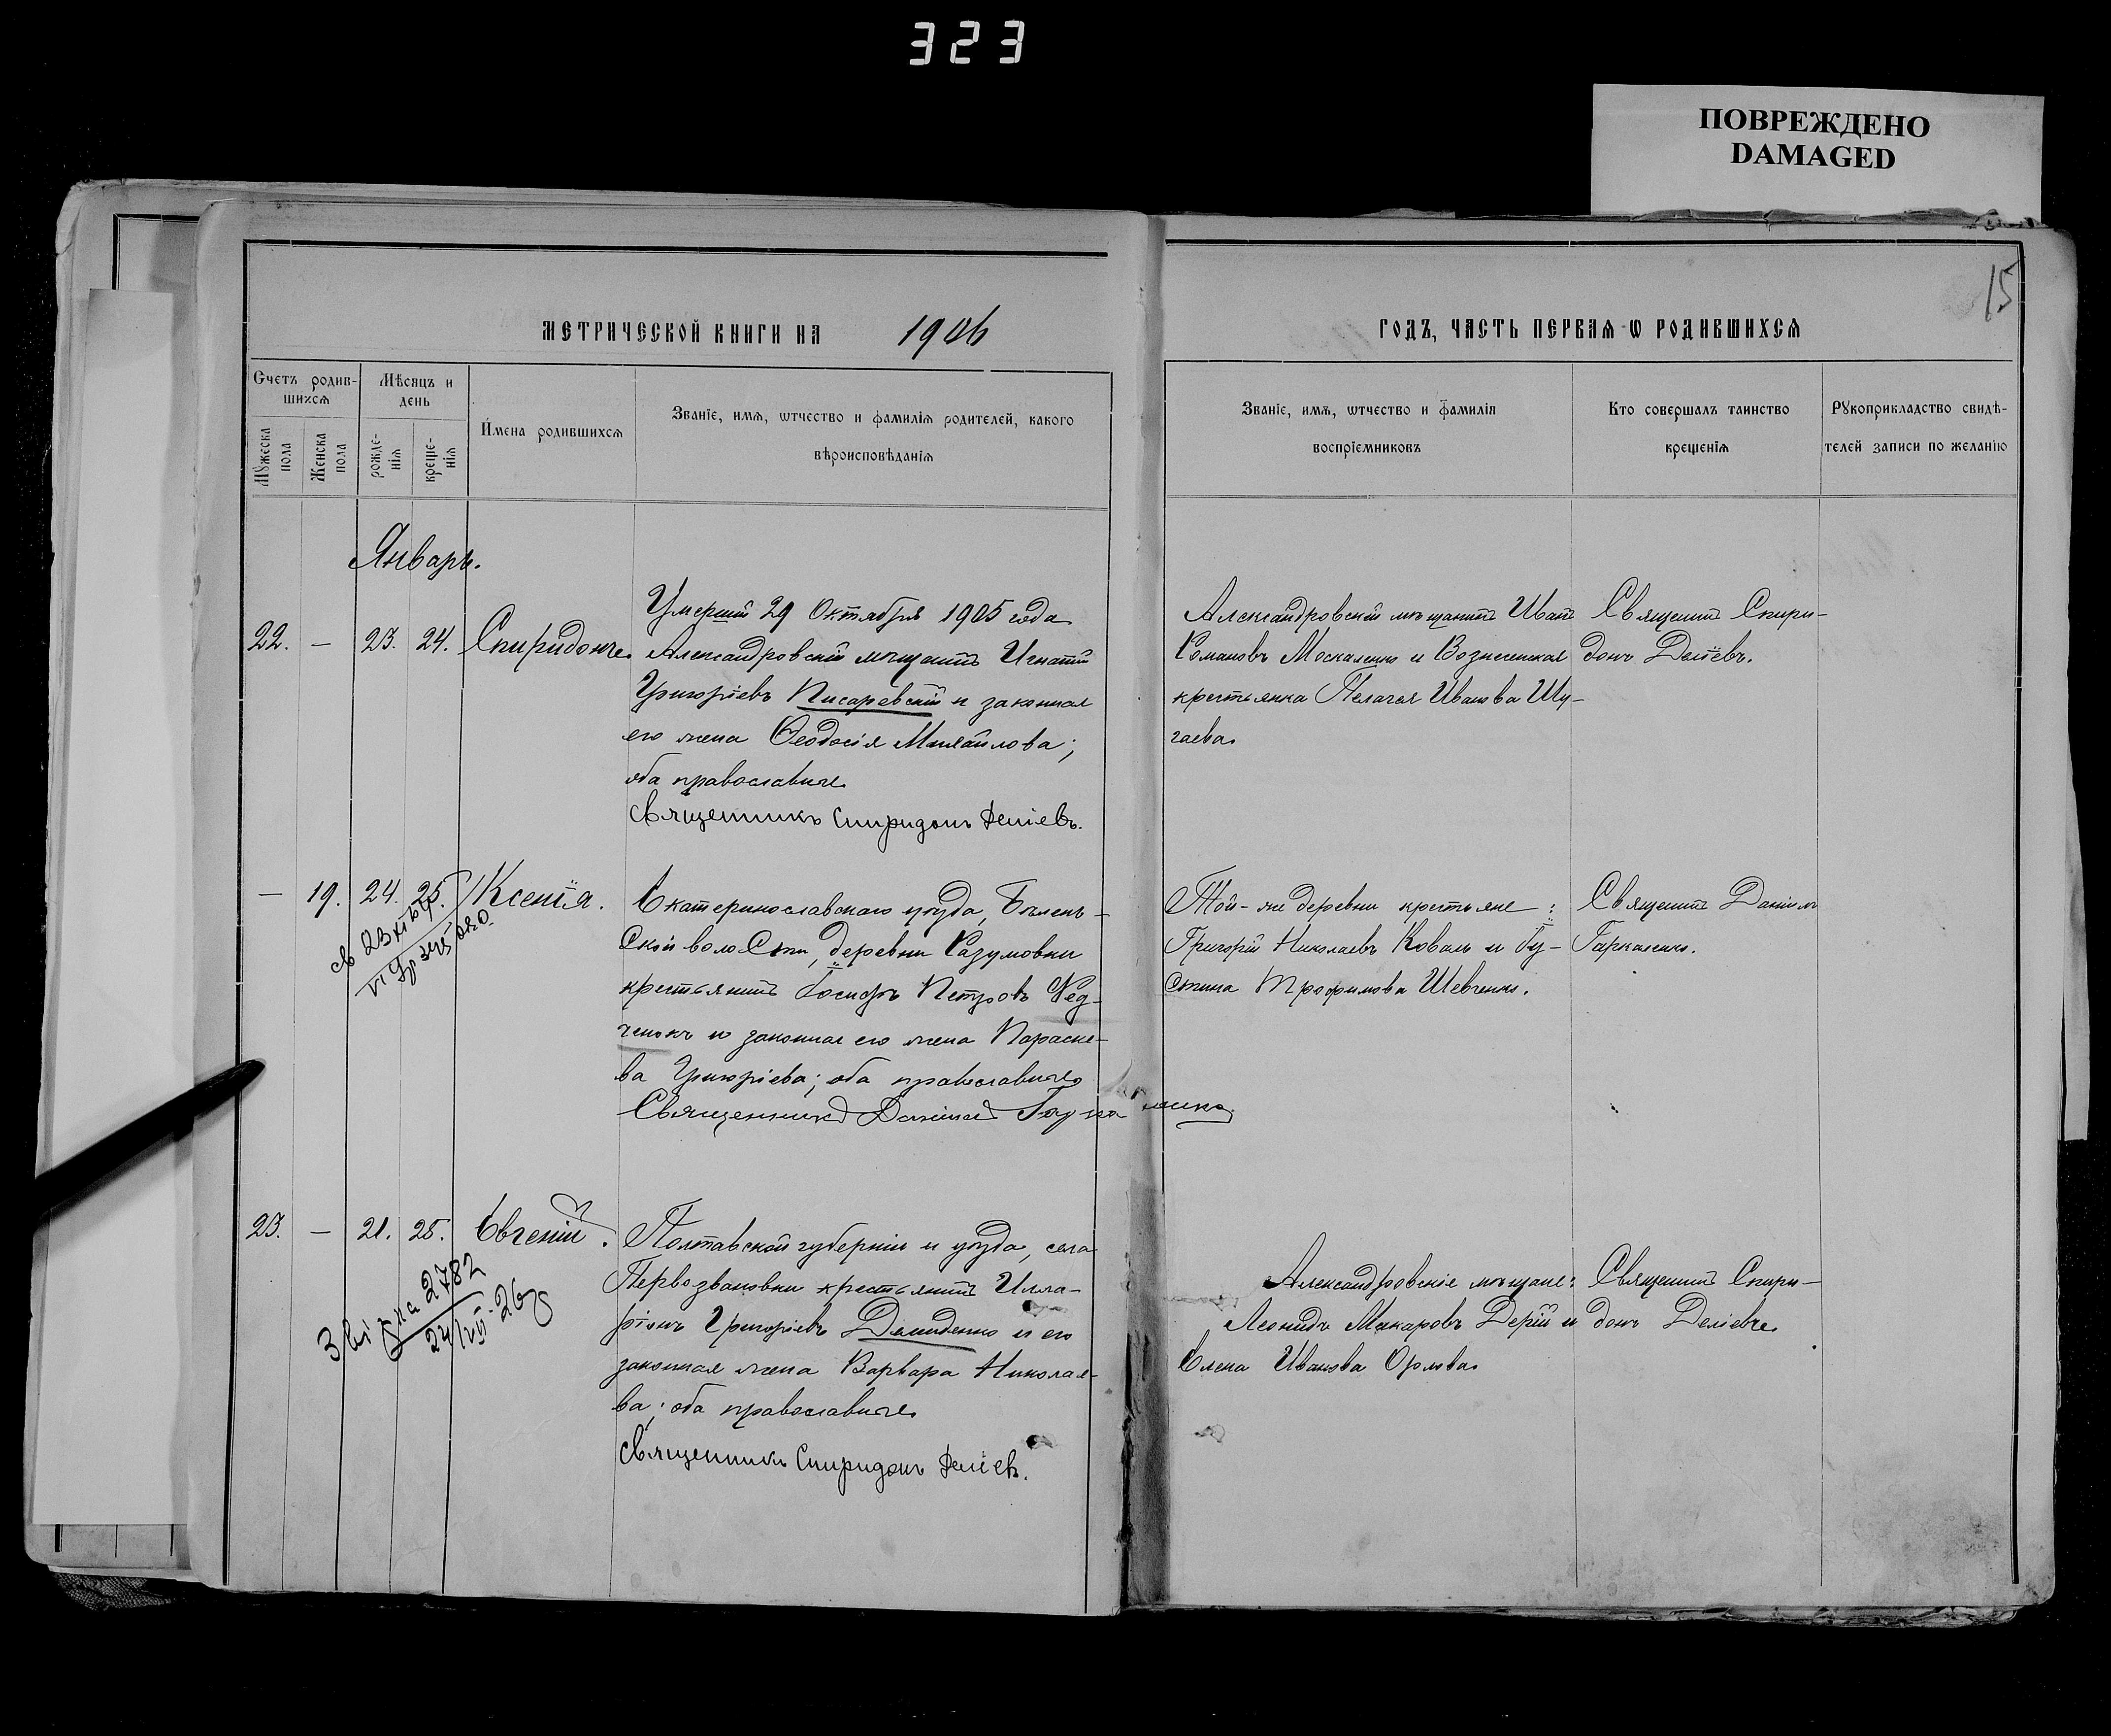 323
ПОВРЕЖДЕНО
DAMAGED
15
МЕТРИЧЕСКОЙ КНИГИ НА 1906
ГОДЪ, ЧАСТЬ ПЕРВАѦ Ѡ РОДИВШИХСѦ
Счетъ родив-
шихсѧ
Мѣсяцъ и
день
Мꙋжеска
пола
Женска
пола
рожде-
нїѧ
креще-
нїѧ
Имена родившихсѧ
Званїе, имѧ, ѡтчество и фамилїѧ родителей, какого
вѣроисповѣданїѧ
Званїе, имѧ, ѡтчество и фамилїѧ
воспрїемниковъ
Кто совершалъ таинство
крещенїѧ
Рꙋкоприкладство свидѣ-
телей записи по желанїю
Январь.
22. — 23. 24. Спиридонъ.
Умершій 29 Октября 1905 года
Александровскій мѣщанинъ Игнатій
Григоріевъ Писаревскій и законная
его жена Ѳеодосія Михайлова;
оба православные.
Священникъ Спиридонъ Деліевъ.
Александровскій мѣщанинъ Иванъ
Романовъ Москаленко и Вознесенская
крестьянка Пелагея Иванова Шу-
гаева.
Священникъ Спири-
донъ Деліевъ.
— 19. 24. 25. Ксенія.
Екатеринославскаго уѣзда, Бѣлень-
ской волости, деревни Разумовки
крестьянинъ Іосифъ Петровъ Ред-
ченокъ и законная его жена Параске-
ва Григоріева; оба православные.
Священникъ Даніилъ Гаркаленко
Той-же деревни крестьяне:
Григорій Николаевъ Коваль и Іу-
стина Трофимова Шевченко.
Священникъ Даніилъ
Гаркаленко.
23. — 21. 25. Евгеній.
2782
24/VII 26
Полтавской губерніи и уѣзда, села
Первозвановки крестьянинъ Илла-
ріонъ Григоріевъ Демиденко и его
законная жена Варвара Николае-
ва; оба православные.
Священникъ Спиридонъ Деліевъ.
Александровскіе мѣщане:
Леонидъ Макаровъ Дерій и
Елена Иванова Орлова.
Священникъ Спири-
донъ Деліевъ.